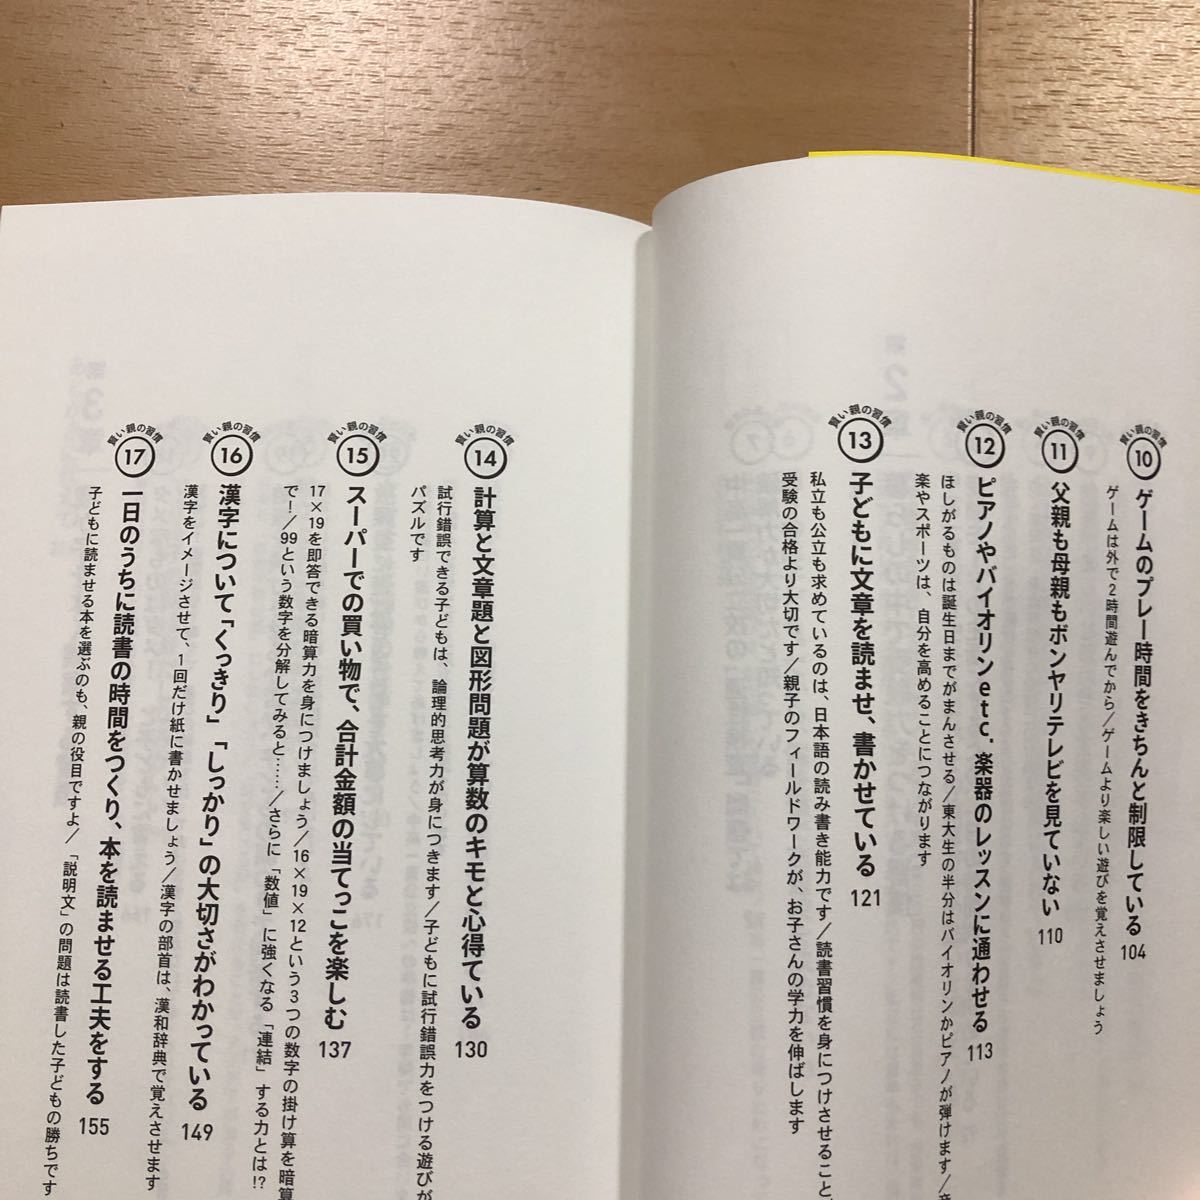 賢い親の習慣
10
ゲームのプレー時間をきちんと制限している 104
ゲームは外で2時間遊んでから/ゲームより楽しい遊びを覚えさせましょう
賢い親の習慣
11
父親も母親もボンヤリテレビを見ていない 110
賢い親の習慣
12
ピアノやバイオリンetc.楽器のレッスンに通わせる 113
ほしがるものは誕生日までがまんさせる/東大生の半分はバイオリンかピアノが弾けます/音
楽やスポーツは、自分を高めることにつながります
賢い親の習慣
13
子どもに文章を読ませ、書かせている 121
私立も公立も求めているのは、日本語の読み書き能力です/読書習慣を身につけさせること、
受験の合格より大切です/親子のフィールドワークが、お子さんの学力を伸ばします
賢い親の習慣
14
計算と文章題と図形問題が算数のキモと心得ている 130
試行錯誤できる子どもは、論理的思考力が身につきます/子どもに試行錯誤力をつける遊びが
パズルです
賢い親の習慣
15
スーパーでの買い物で、合計金額の当てっこを楽しむ 137
17×19を即答できる暗算力を身につけましょう/16×19×12という3つの数字の掛け算を暗算
で!/99という数字を分解してみると……/さらに「数値」に強くなる「連結」する力とは!?
賢い親の習慣
16
漢字について「くっきり」「しっかり」の大切さがわかっている 149
漢字をイメージさせて、1回だけ紙に書かせましょう/漢字の部首は、漢和辞典で覚えさせます
賢い親の習慣
17
一日のうちに読書の時間をつくり、本を読ませる工夫をする 155
子どもに読ませる本を選ぶのも、親の役目ですよ/「説明文」の問題は読書した子どもの勝ちです